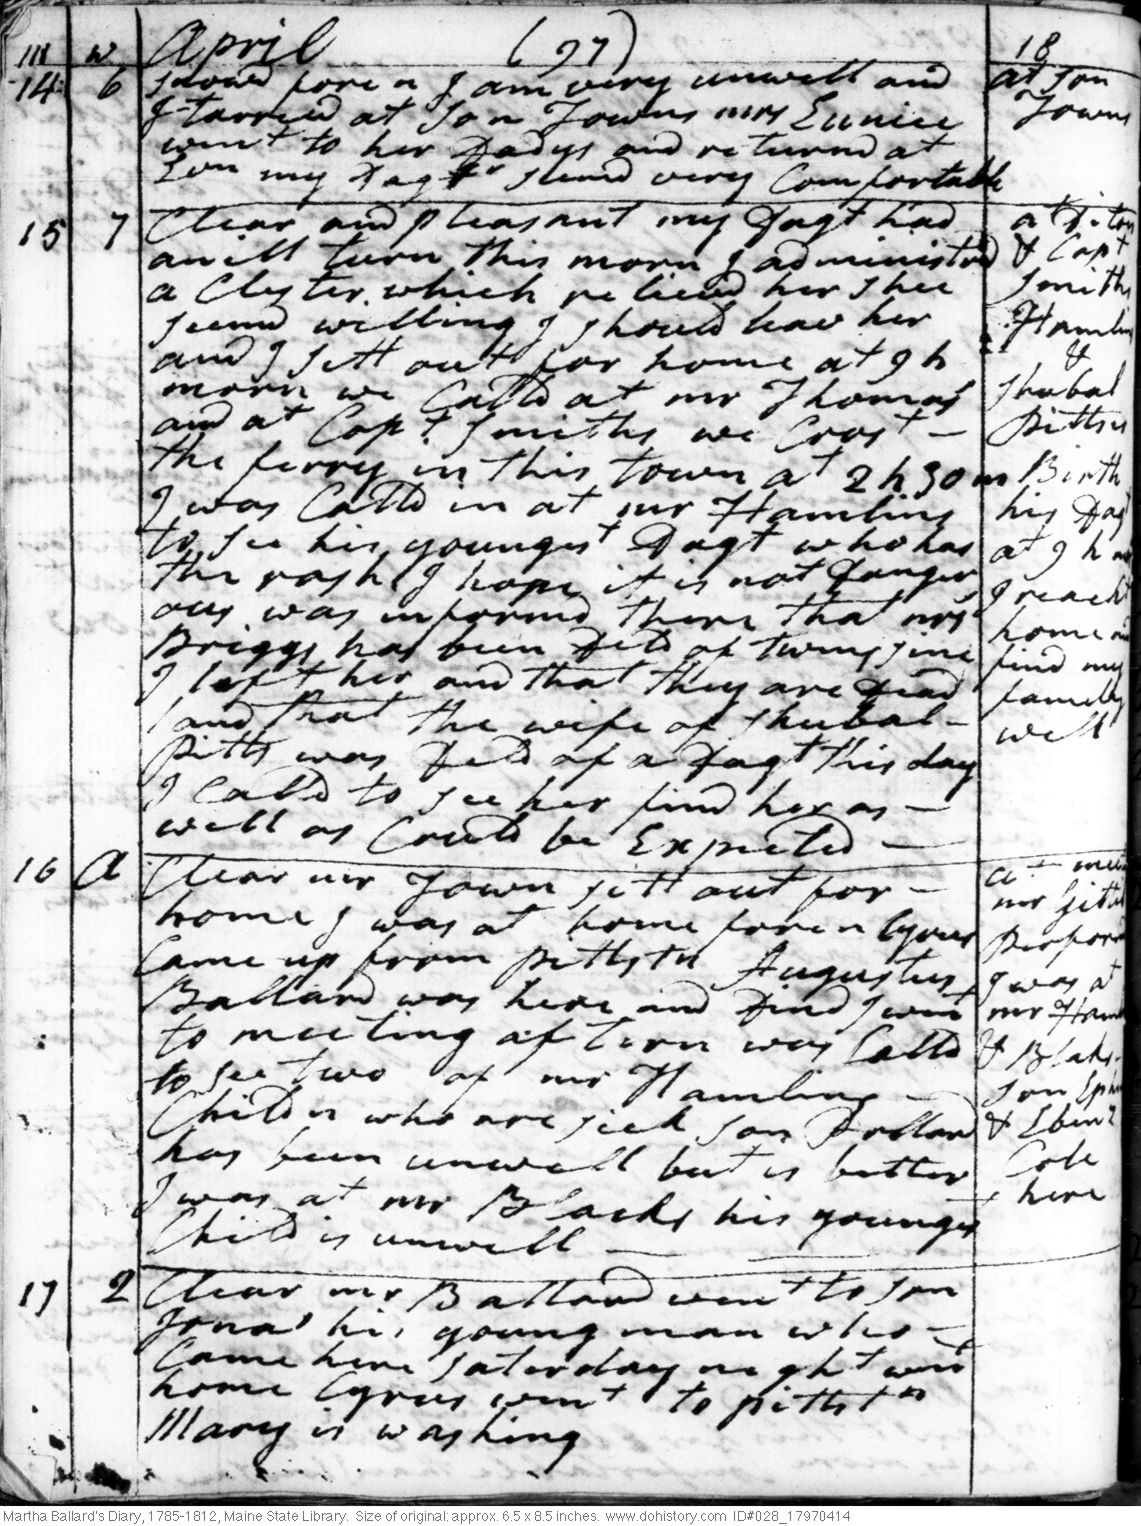 m w April (97) 18
14 6 snowd foren I am very unwell and
I tarried at Son Towns mrs Eunice
went to her Dadys and returnd at
Evn my Dagtr seemd very Comfortable
at son
Towns
15 7 Clear and pleasant my Dagt had
an ill turn this morn I administred
a Clyster which relievd her shee
seemd willing I should leav her
and I sett out for home at 9 h
morn we Calld at mr Thomas
and at Capt Smiths we Crost
the ferry in this town at 2 h 30 m
I was Calld in at mr Hamlins
to see his youngest Dagt who has
the rash I hope it is not Danger
ous was informd there that mrs
Briggs has been Deld of twins sine
I left her and that they are Dead
and that the wife of shubal
Pitts was Deld of a Dagt this day
I Calld to see her find her as
well as Could be Expected
at
& Capt
Smiths
Hamlin
&
shubal
Pittss
Birth
his Dagt
at 9 h
I reacht
home and
find my
family
well
16 A Clear mr Town sett out for
home I was at home foren Cyrus
Came up from Pittstn Augustus
Ballard was here and Dind I went
to meeting aftern was Calld
to see two of mr Hamlins
Childn who are sick son
has been unwell but is better
I was at mr Blacks his youngst
Child is unwell
at
mr
perform
I was at
mr Ham
& Blaks
son Eph
& Ebenz
Cobe
here
17 2 Clear mr Ballard went to son
Jonas his young man who
Came here Saterday night went
home Cyrus went to pittstn
Mary is washing
Martha Ballard's Diary, 1785-1812, Maine State Library. Size of original: approx. 6.5 x 8.5 inches. www.dohistory.com ID#028_17970414